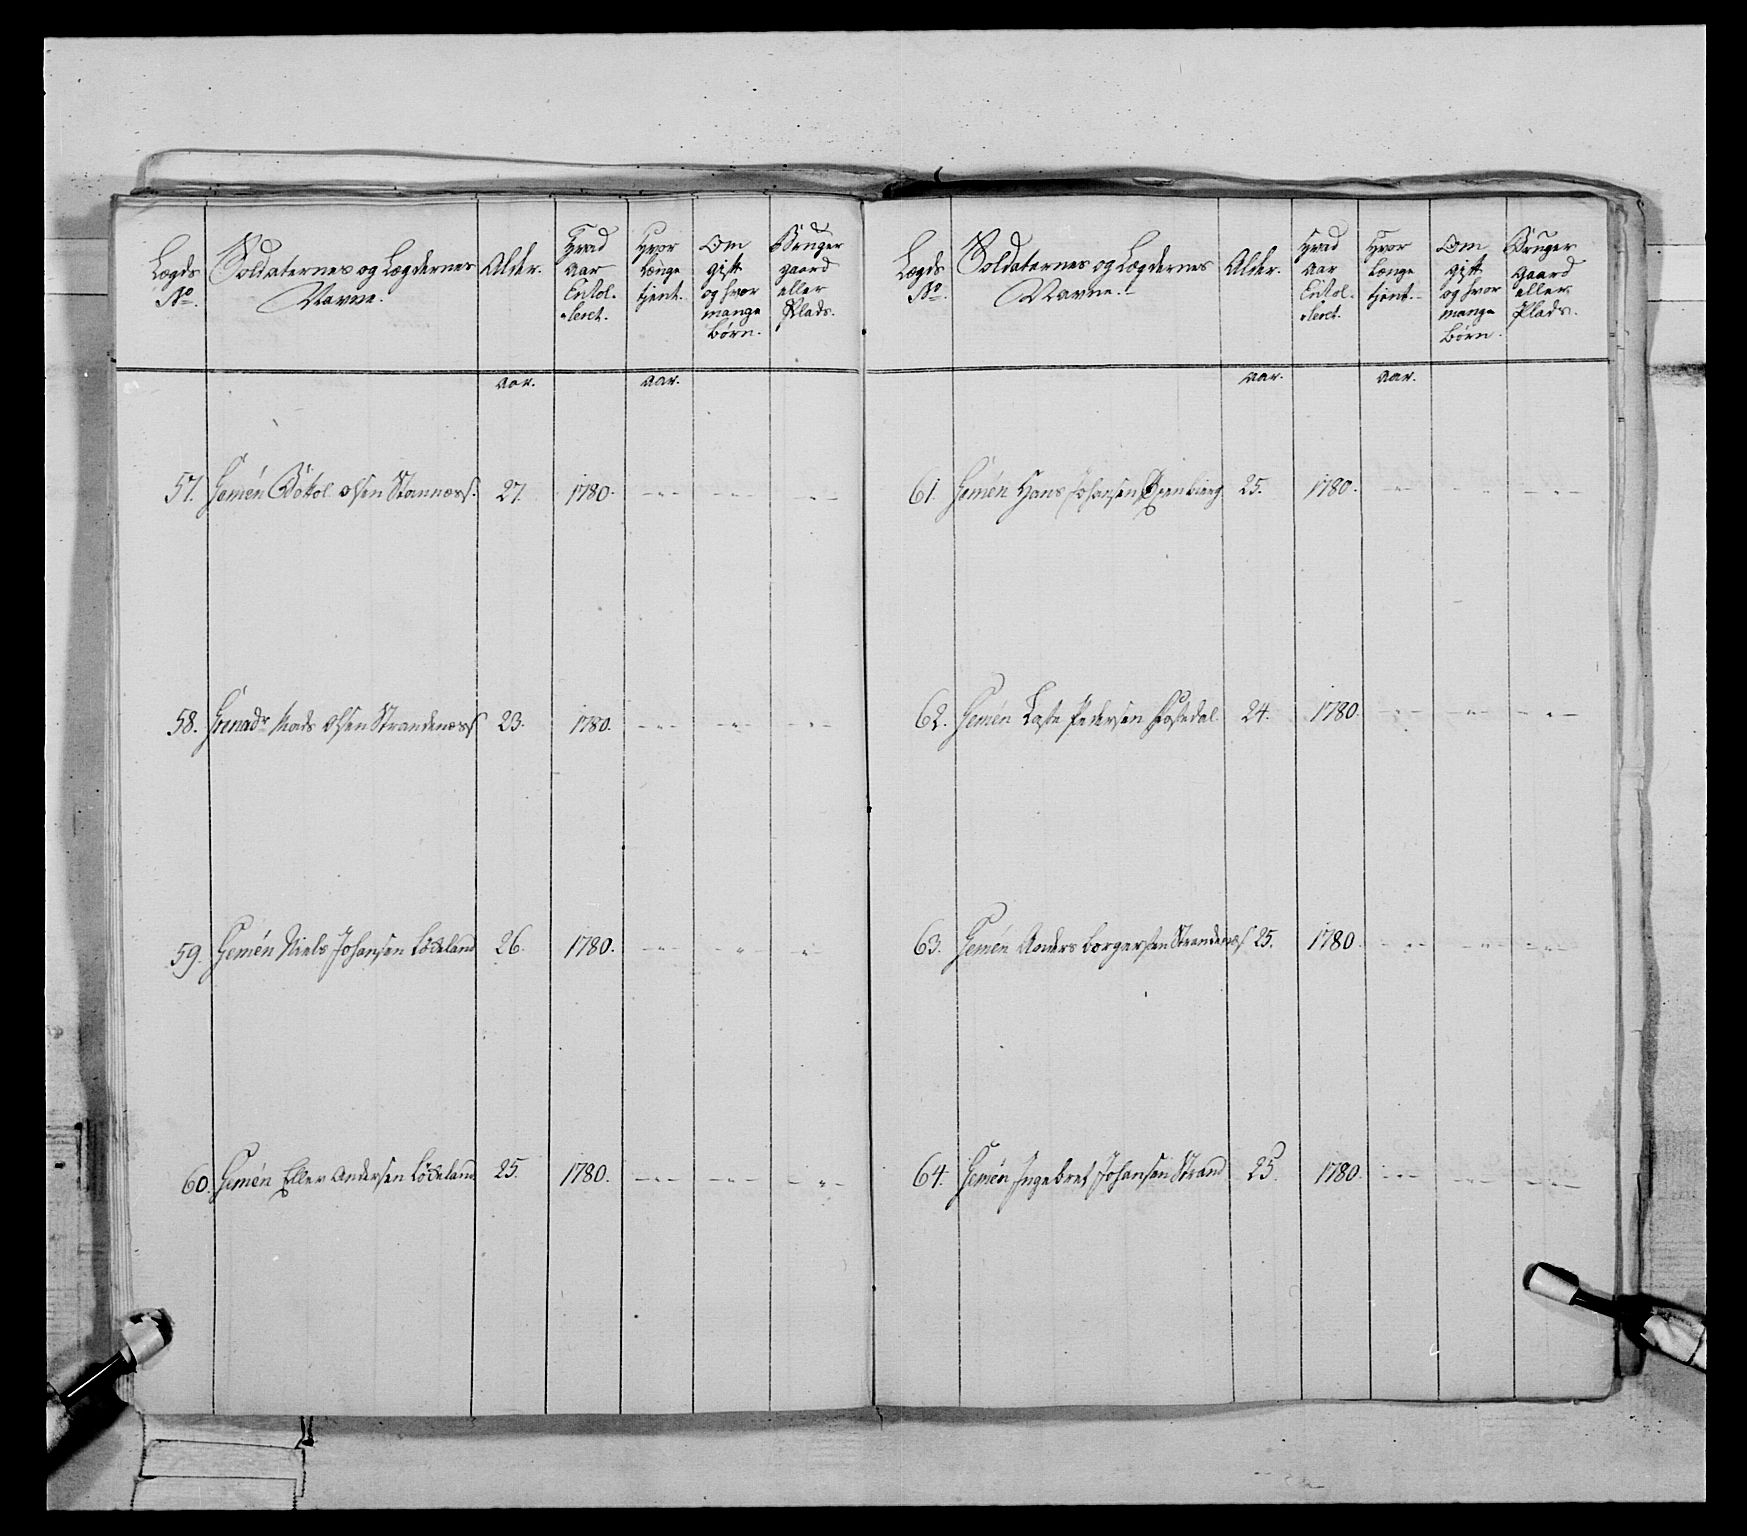 Lægds No.
Soldaternes og Lægdernes Navne.
Alder.
Hvad Aar Enrol-leret.
Hvor Længe tjent.
Om gift og hvor mange Børn.
Bruger gaard eller Plads.
Aar.
Aar.
57. Gemén Olsen Stannæss. 27. 1780.
58. Grenadr. Mads Olsen Strandenæss 23. 1780.
59. Gemén Niels Johansen Lödeland 26. 1780.
60. Gemén Eller Andersen Lödeland 25. 1780.
Lægds No.
Soldaternes og Lægdernes Navne.
Alder.
Hvad Aar Enrol-leret.
Hvor Længe tjent.
Om gift og hvor mange Børn.
Bruger gaard eller Plads.
Aar.
Aar.
61. Gemén Hans Johansen 25. 1780.
62. Gemén Pedersen 24. 1780.
63. Gemén Anders Borgersen Strandenæss 25. 1780.
64. Gemén Ingebret Johansen Strand 25. 1780.